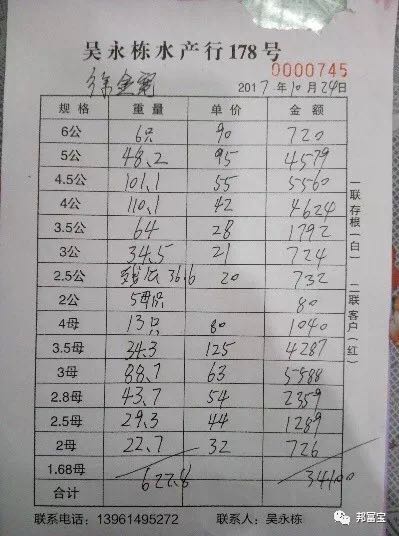 吴永栋水产行178号
0000745
徐金宽 2017年10月24日
规格 重量 单价 金额
6公 6只 90 720
5公 48.2 95 4579
4.5公 101.1 55 5560
4公 110.1 42 4624
3.5公 64 28 1792
3公 34.5 21 724
2.5公 36.6 20 732
2公 80
4母 13只 80 1040
3.5母 34.3 125 4287
3母 88.7 63 5588
2.8母 43.7 54 2359
2.5母 29.3 44 1289
2母 22.7 32 726
1.68母
合计 622.8 34100
联系电话：13961495272 联系人：吴永栋
一联存根(白) 二联客户(红)
邦富宝